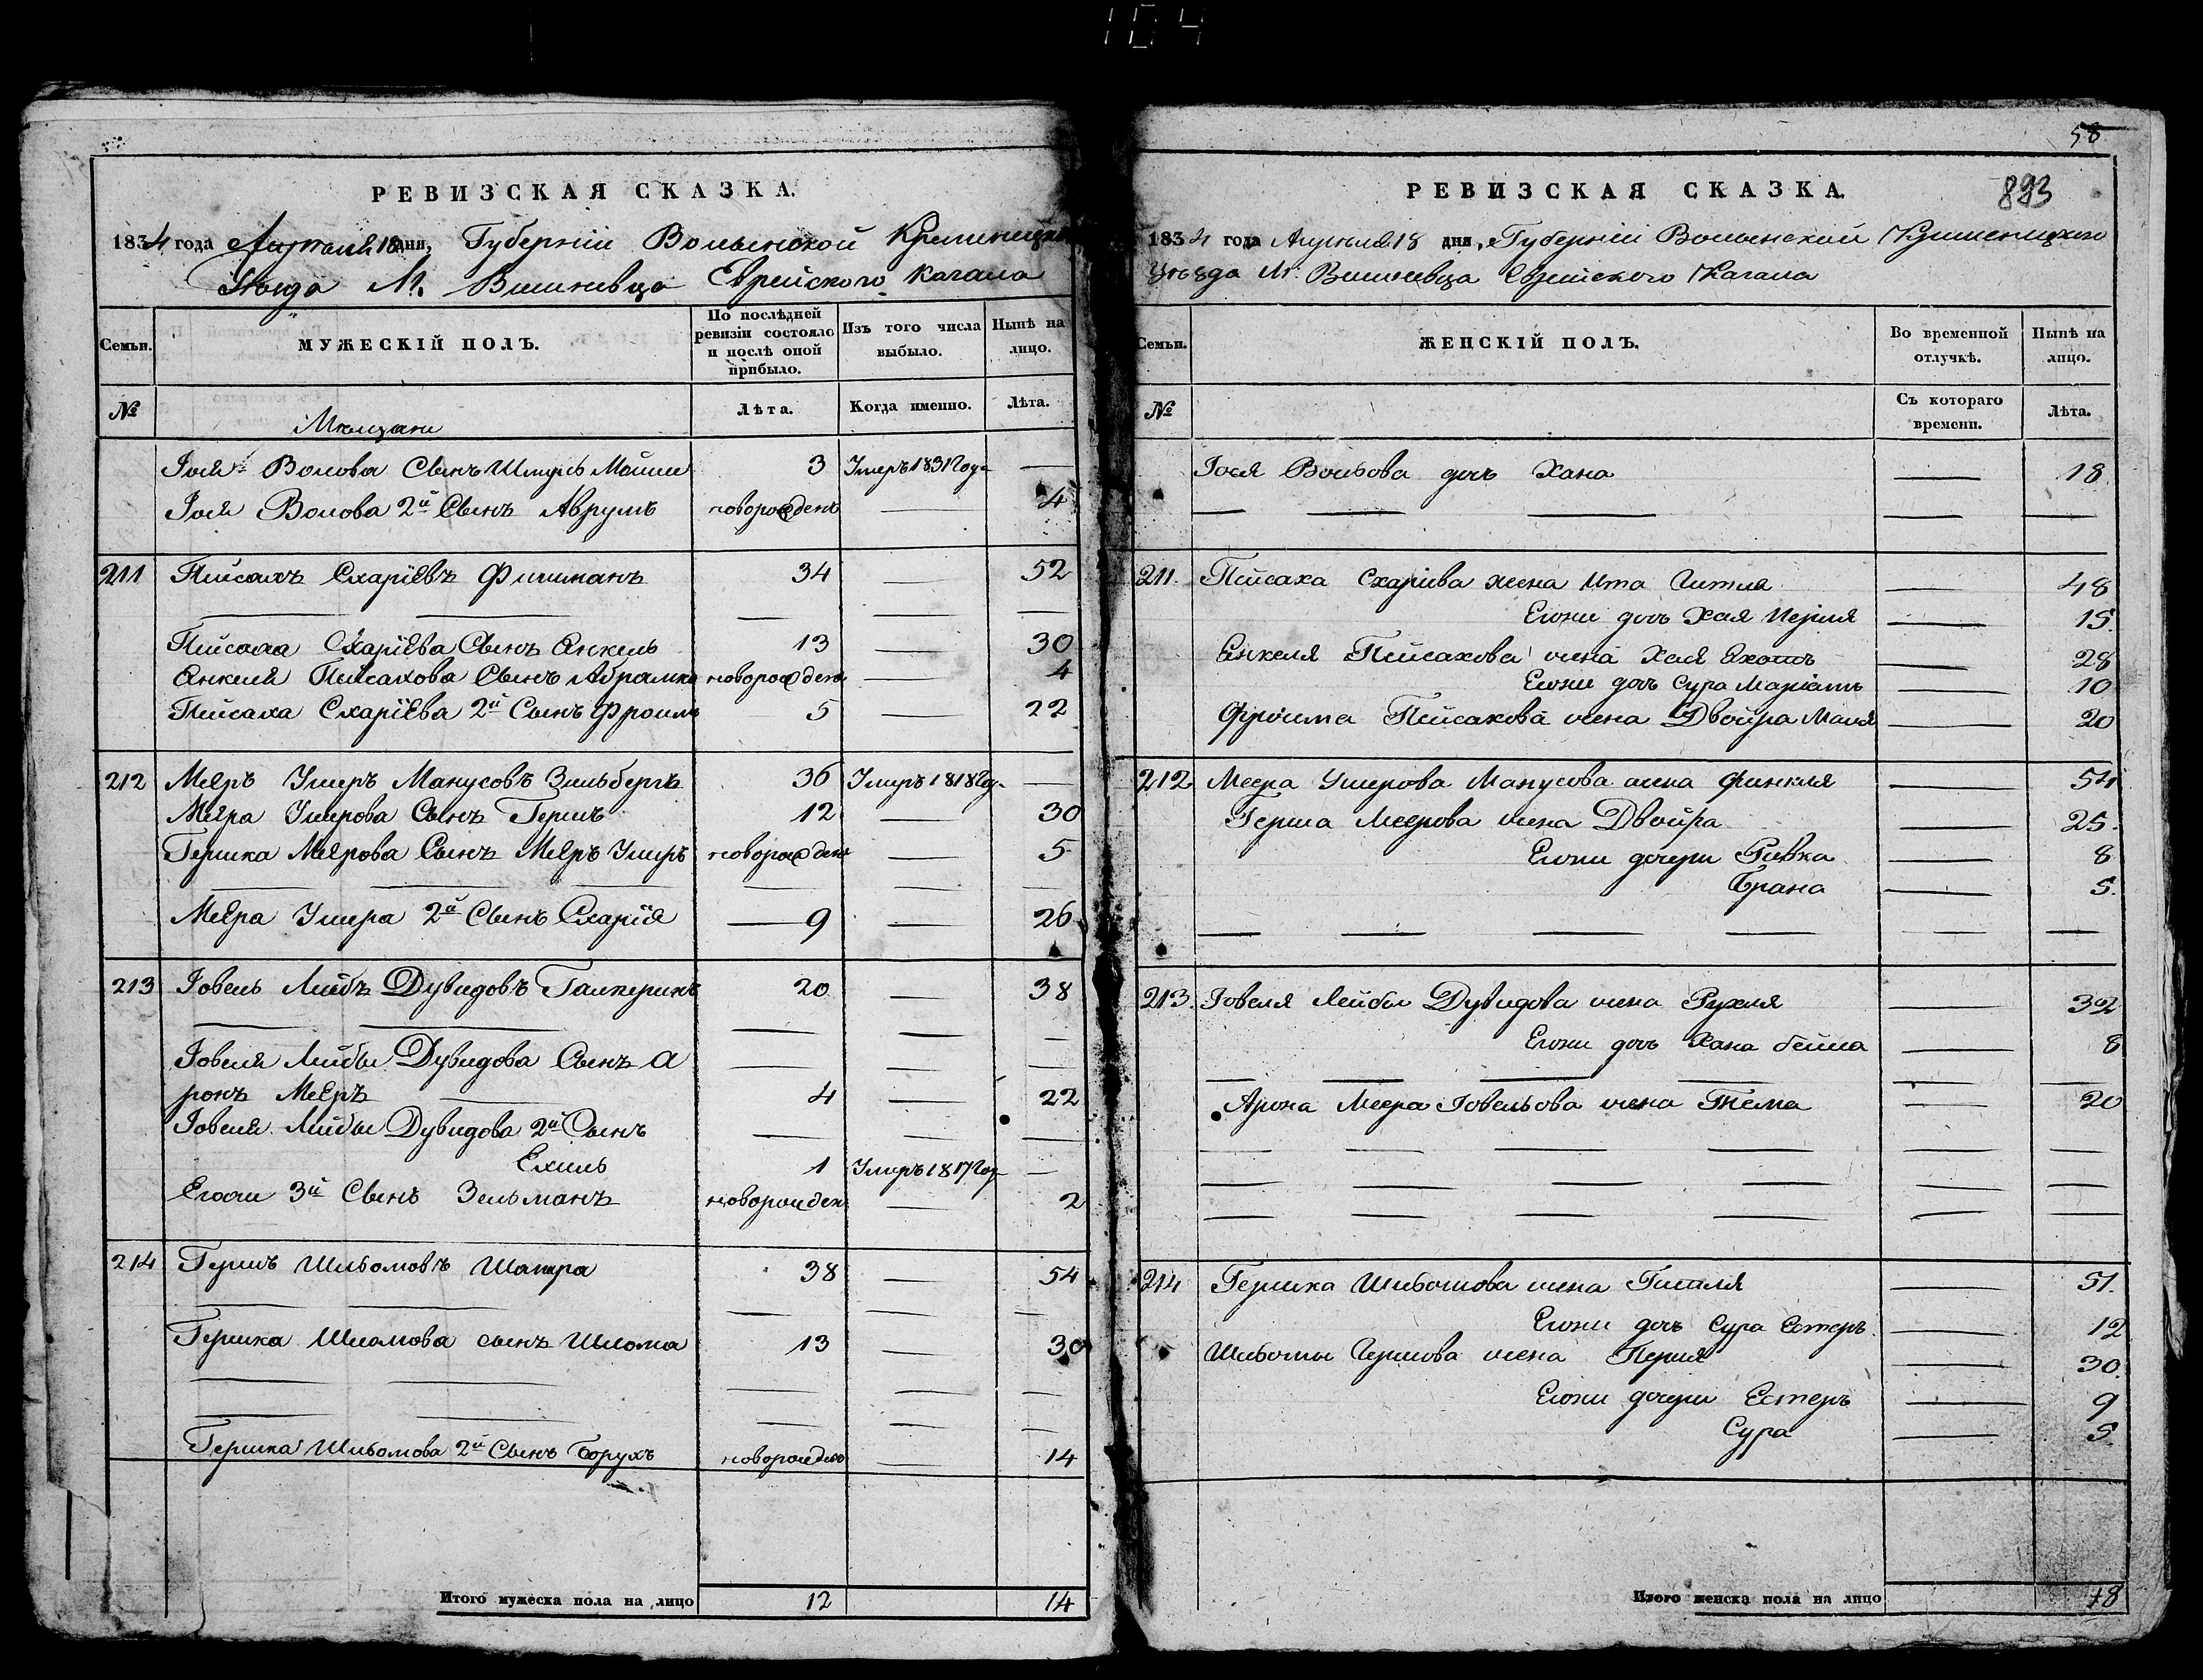 104
РЕВИЗСКАЯ СКАЗКА.
1834 года Апреля 18 дня, Губернiи Волынской Кременецкаго
Уѣзда М. Вишневца Еврейского Кагала
Семьи.
МУЖЕСКІЙ ПОЛЪ.
По послѣдней ревизіи состояло и послѣ оной прибыло.
Изъ того числа выбыло.
Нынѣ на лицо.
№
Мѣщане
Лѣта.
Когда именно.
Лѣта.
Іося Волова Сынъ Шмуль 3 Умеръ 1831 Года —
Іося Волова 2й Сынъ Аврумъ новорожденъ — 4
211 Пейсахъ Схаріевъ Фишманъ 34 — 52
Пейсаха Схаріева Сынъ Янкель 13 — 30
Янкеля Пейсахова Сынъ Абрамко новорожден — 4
Пейсаха Схаріева 2й Сынъ Фроимъ 5 — 22
212 Мееръ Ушеръ Манусовъ Зильбергъ 36 Умеръ 1818 Год —
Меера Ушерова Сынъ Гершъ 12 — 30
Гершка Меерова Сынъ Мееръ Ушеръ новорожден — 5
Меера Ушера 2й Сынъ Схарія 9 — 26
213 Іовель Лейбъ Дувидовъ Галперинъ 20 — 38
Іовеля Лейбы Дувидова Сынъ А
ронъ Мееръ 4 — 22
Іовеля Лейбы Дувидова 2й Сынъ
Ехиль 1 Умеръ 1817 Год —
Егожъ 3й Сынъ Зельманъ новорожден — 2
214 Гершъ Шльомовъ Шапира 38 — 54
Гершка Шльомова сынъ Шльома 13 — 30
Гершка Шльомова 2й Сынъ Борухъ новорожден — 14
Итого мужеска пола на лицо 12 14
58
РЕВИЗСКАЯ СКАЗКА.
893
1834 года Апреля 18 дня, Губерніи Волынской Кременецкого
Уѣзда М. Вишневца Еврейского Кагала
Семьи.
ЖЕНСКІЙ ПОЛЪ.
Во временной отлучкѣ.
Нынѣ на лицо.
№
Съ котораго времени.
Лѣта.
Іося Вольова дочъ Хана — 18
211. Пейсаха Схаріева жена Ита Гитля — 48
Егожи дочъ Хая — 15.
Янкеля Пейсахова жена Хая — 28
Егожи дочъ Сура Маріамъ — 10
Фроима Пейсахова жена Двойра — 20
212 Меера Ушерова Манусова жена Финкля — 54
Герша Меерова жена Двойра — 25.
Егожи дочери Ривка — 8
Брана — 5.
213. Іовеля Лейбы Дувидова жена Рухля — 32
Егожи дочъ Хана Бейла — 8
Арона Меера Іовельова жена Тема — 20
214 Гершка Шльомова жена Гитля — 51.
Егожи дочъ Сура Естеръ — 12
Шльомы Гершова жена Перля — 30.
Егожи дочери Естеръ — 9
Сура — 5.
Итого женска пола на лицо 18